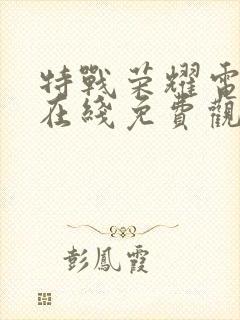 特戰荣耀電
在綫免費觀
彭鳳霞